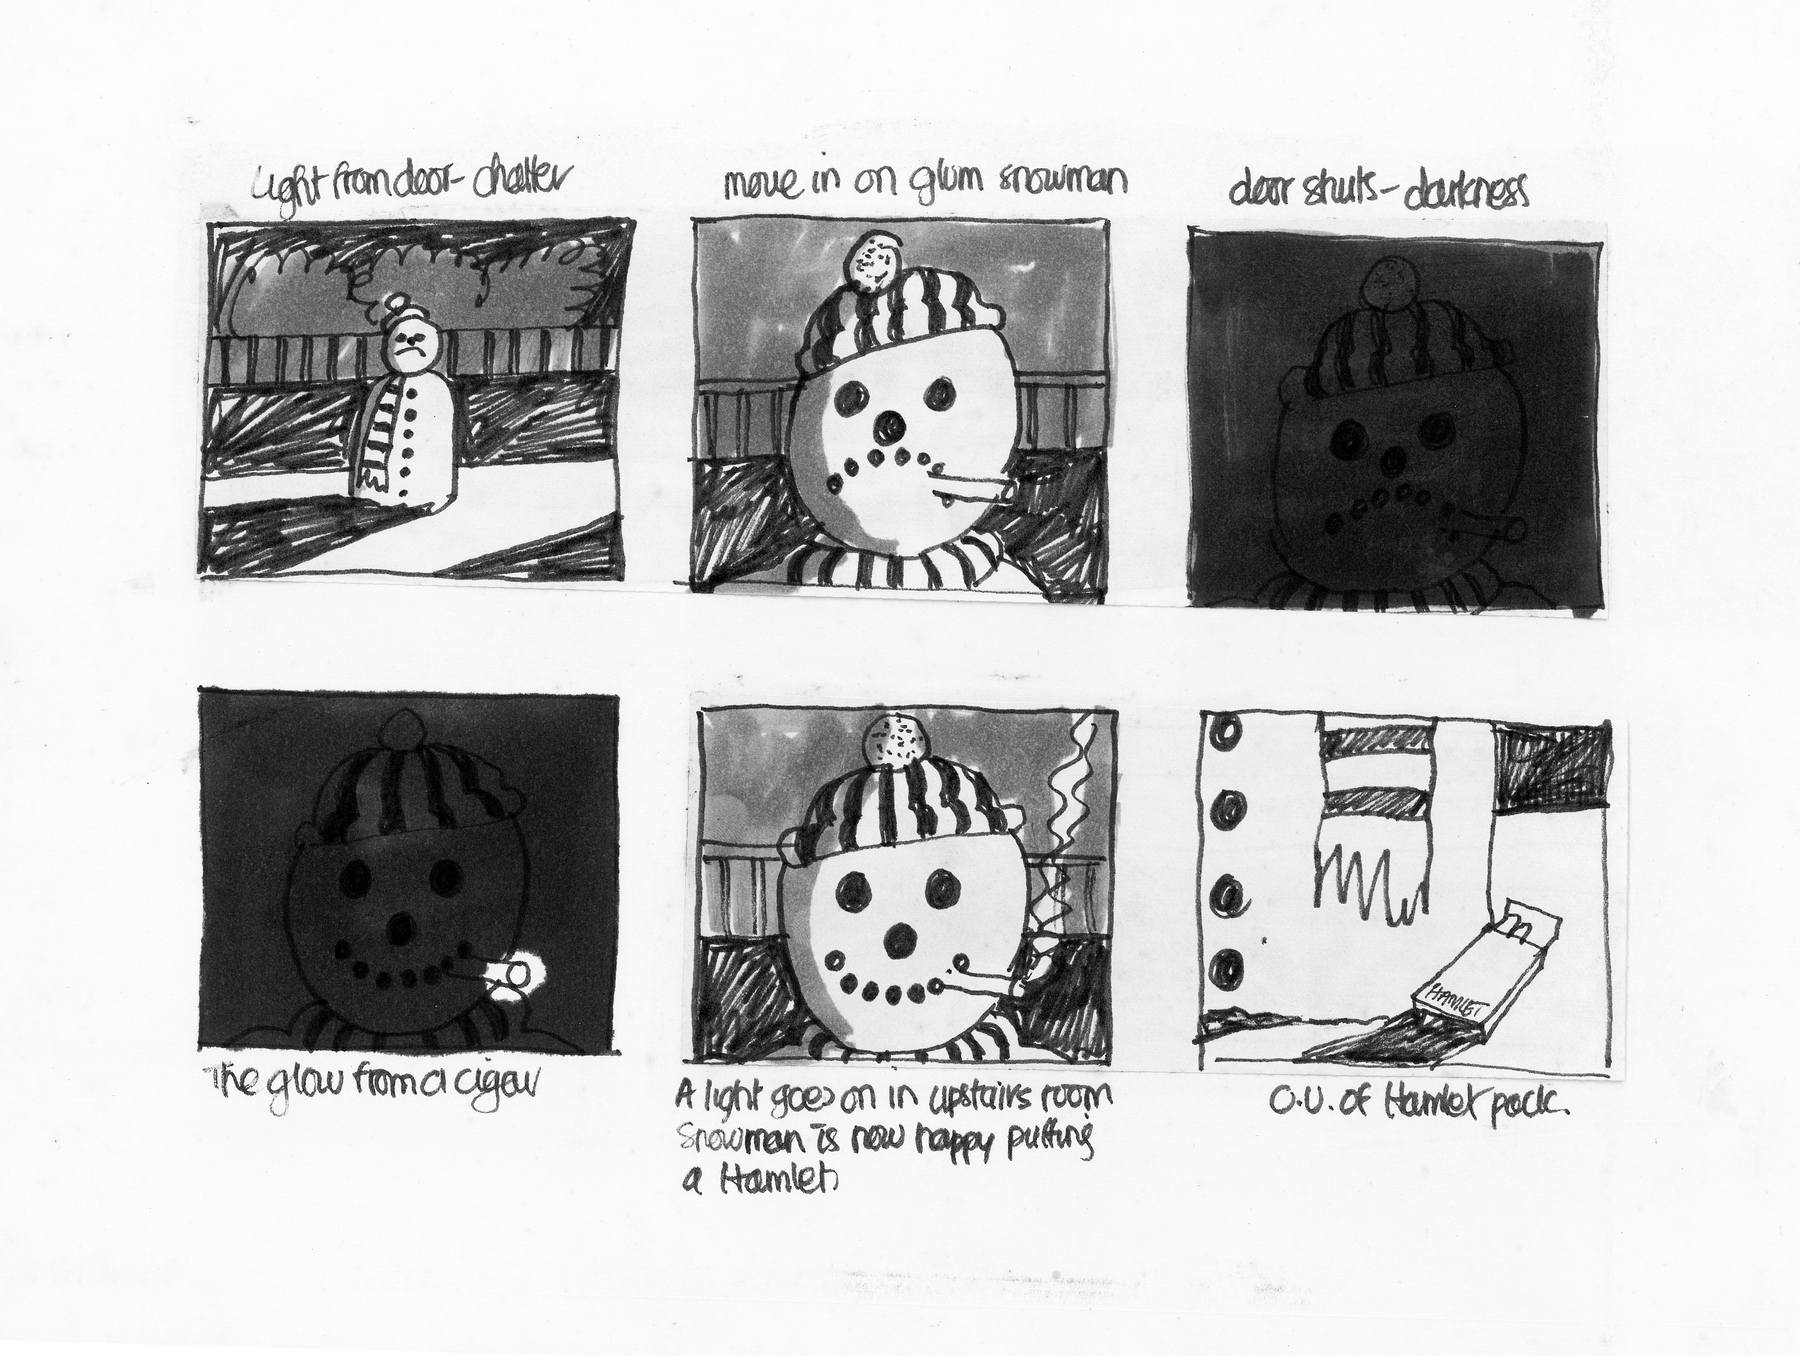 Light from door - chatter
move in on glum snowman
door shuts - darkness
The glow from a cigar
A light goes on in upstairs room
Snowman is now happy puffing
a Hamlet
HAMLET
C.U. of Hamlet pack.